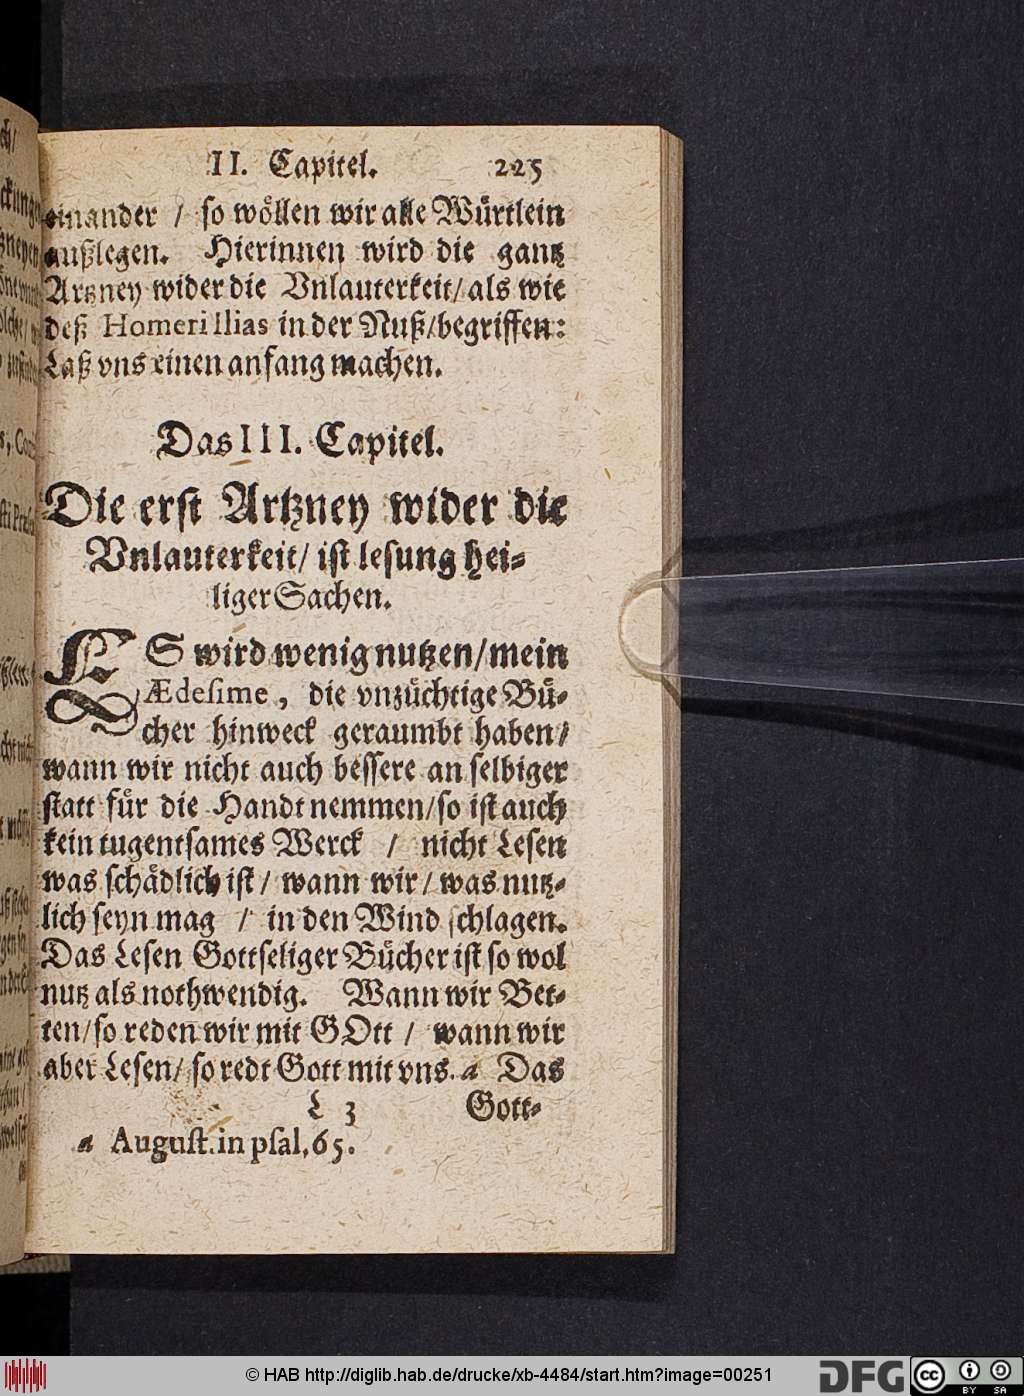 II. Capitel. 225
einander / so wöllen wir alle Würtlein
außlegen. Hierinnen wird die gantz
Artzney wider die Vnlauterkeit / als wie
deß Homeri Ilias in der Nuß / begriffen:
Laß vns einen anfang machen.
Das III. Capitel.
Die erst Artzney wider die
Vnlauterkeit / ist lesung hei-
liger Sachen.
ES wird wenig nutzen / mein
Ædesime, die vnzüchtige Bü-
cher hinweck geraumbt haben /
wann wir nicht auch bessere an selbiger
statt für die Handt nemmen / so ist auch
kein tugentsames Werck / nicht Lesen
was schädlich ist / wann wir / was nutz-
lich seyn mag / in den Wind schlagen.
Das Lesen Gottseliger Bücher ist so wol
nutz als nothwendig. Wann wir Bet-
ten / so reden wir mit GOtt / wann wir
aber Lesen / so redt Gott mit vns. a Das
L 3 Gott-
a August. in psal. 65.
© HAB http://diglib.hab.de/drucke/xb-4484/start.htm?image=00251
DFG
cc BY SA